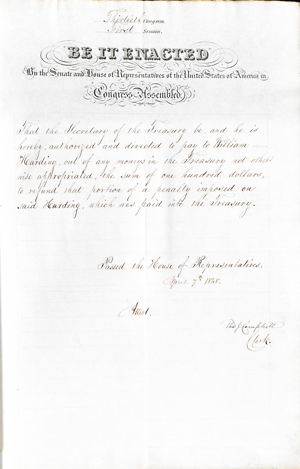 Thirtieth Congress
First Session,
BE IT ENACTED
By the Senate and House of Representatives of the United States of America in
Congress Assembled
That the Secretary of the Treasury be, and he is
hereby, authorized and directed to pay to William
Harding, out of any money in the Treasury not other
wise appropriated, the sum of one hundred dollars,
to refund that portion of a penalty imposed on
said Harding, which was paid into the Treasury.
Passed the House of Representatives,
April 7th 1848.
Attest.
Tho J Campbell
Clerk.